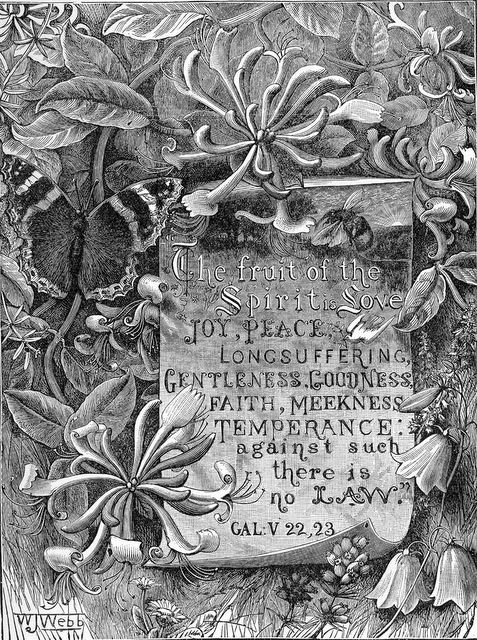 The fruit of the
Spirit is Love
JOY, PEACE,
LONGSUFFERING,
GENTLENESS, GOODNESS,
FAITH, MEEKNESS,
TEMPERANCE:
against such
there is
no LAW."
GAL: V 22, 23
W J Webb